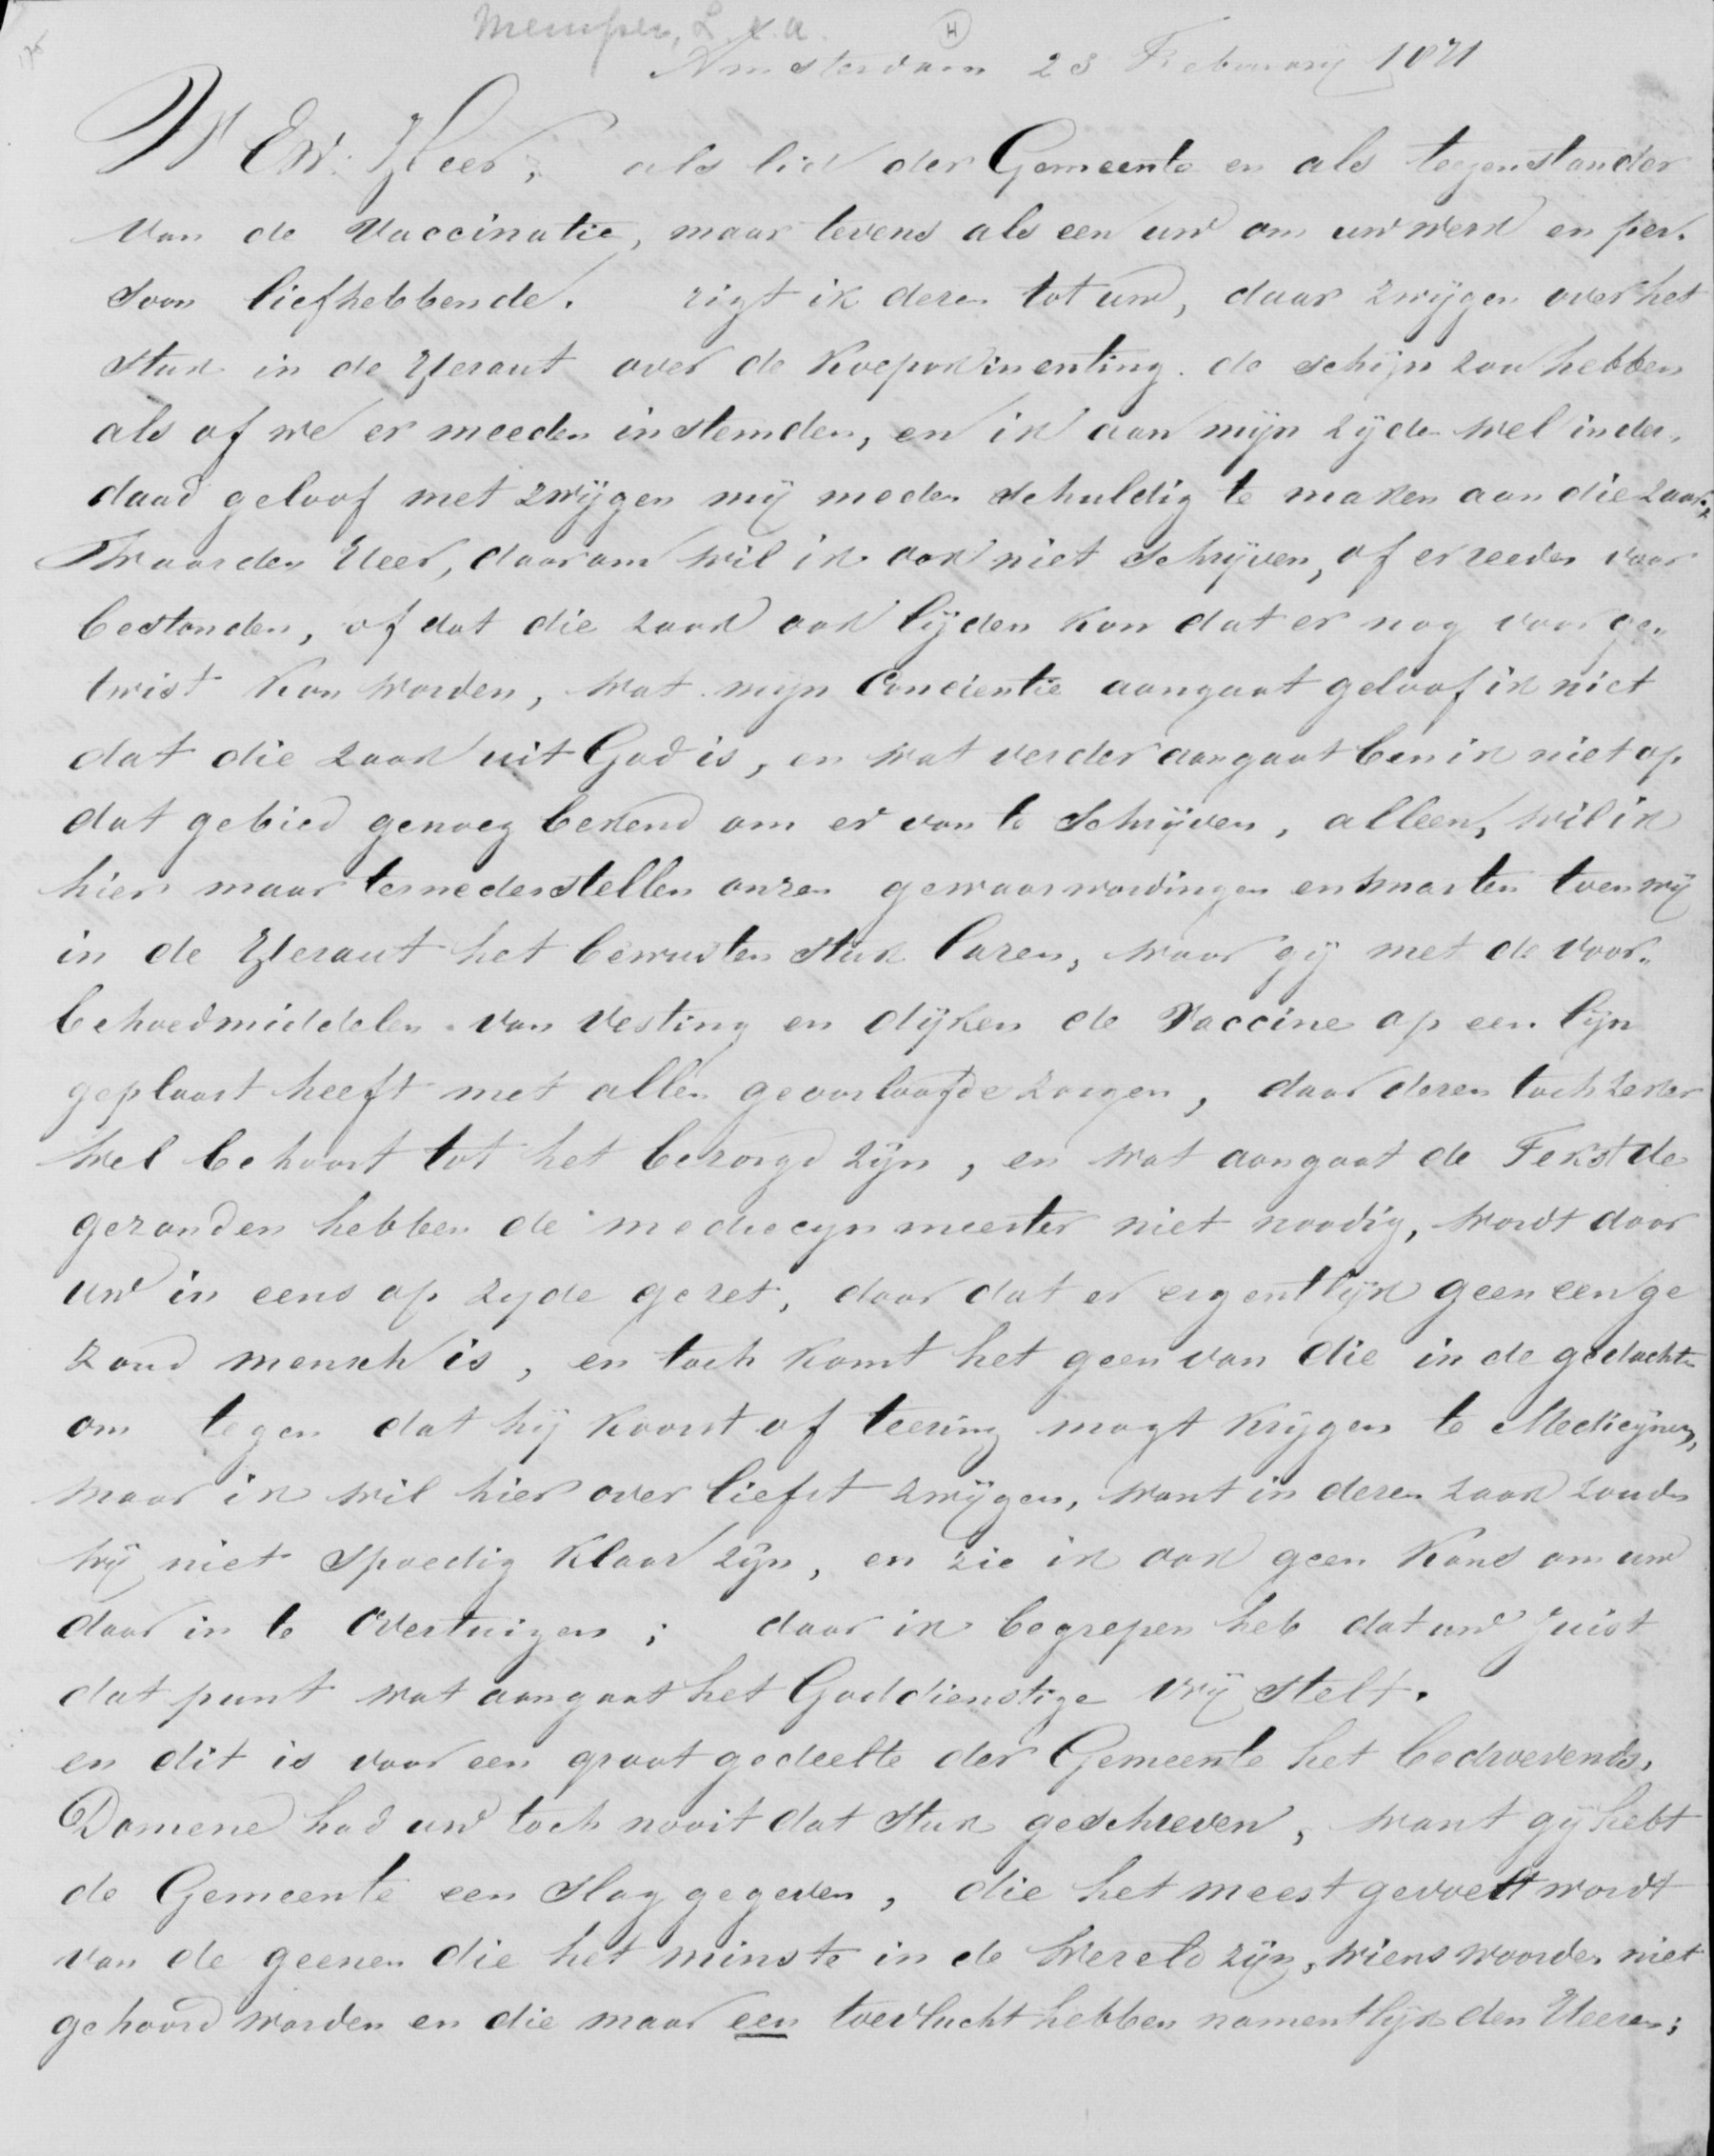 Amsterdam 23 February 1871
W Ew: Heer, als lid der Gemeente en als teegenstander
van de Vaccinatie, maar tevens als een uw om uw werk en per„
soon liefhebbende. rigt ik deze tot uw, daar zwijgen over het
stuk in de Heraut over de Koepokinenting. de schijn zou hebben
als of we er meeden instemden, en ik aan mijn zijde wel inder„
daad geloof met zwijgen mij mede schuldig te maken aan die zaak,
Waarden Heer, daarom wil ik ook niet schrijven, of er reeden voor
bestonden, of dat die zaak ook lijden kon dat er nog voor ge„
twist kon worden, wat mijn Conciëntie aangaat geloof ik niet
dat die zaak uit God is, en wat verder aangaat ben ik niet op
dat gebied genoeg bekend om er van te schrijven, alleen, wil ik
hier maar ternederstellen onzen gewaarwordingen en smarten toen wij
in de Heraut het bewusten stuk lazen, waar gij met de voor„
behoedmiddelen van vesting en dijken de Vaccine op een lijn
geplaast heeft met allen geoorloofde zorgen, daar dezen toch zeker
wel behoort tot het bezorgd zijn, en wat aangaat de Tekst de
gezonden hebben de medecynmeester niet noodig, wordt door
uw in eens op zyde gezet, door dat er eigentlijk geen een ge
zond mensch is, en toch komt het geen van die in de gedachte
om tegen dat hij koorst of teering mogt krijgen te Medicijnen,
maar ik wil hier over liefst zwijgen, want in deze zaak zoude
wij niet spoedig klaar zijn, en zie ik ook geen kans om uw
daar in te overtuigen; daar ik begrepen heb dat uw juist
dat punt wat aangaat het Goddienstige vrij stelt.
en dit is voor een groot gedeelte der Gemeente het bedroevends,
Domene had uw toch nooit dat stuk geschreven, want gij hebt
de Gemeente een slag gegeven, die het meest gevoelt wordt
van de geenen die het minste in de wereld zijn, wiens woorden niet
gehoord worden en die maar een toevlucht hebben namentlijk den Heere;